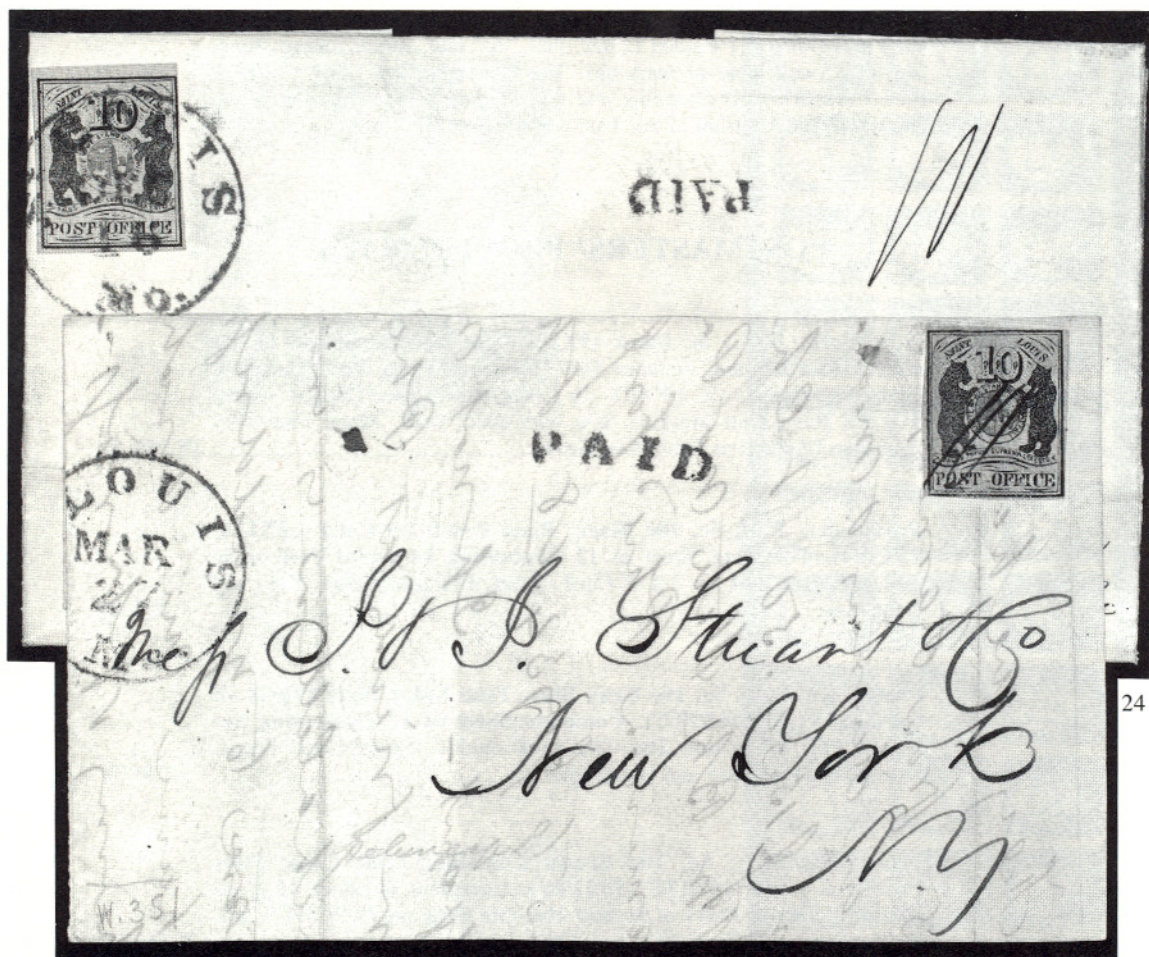 SAINT LOUIS
10
POST OFFICE
IS
18
MO.
PAID
SAINT LOUIS
10
POST OFFICE
PAID
LOUIS
MAR
Mo.
Mess J. & J. Stuart & Co
New York
NY
W.351
24